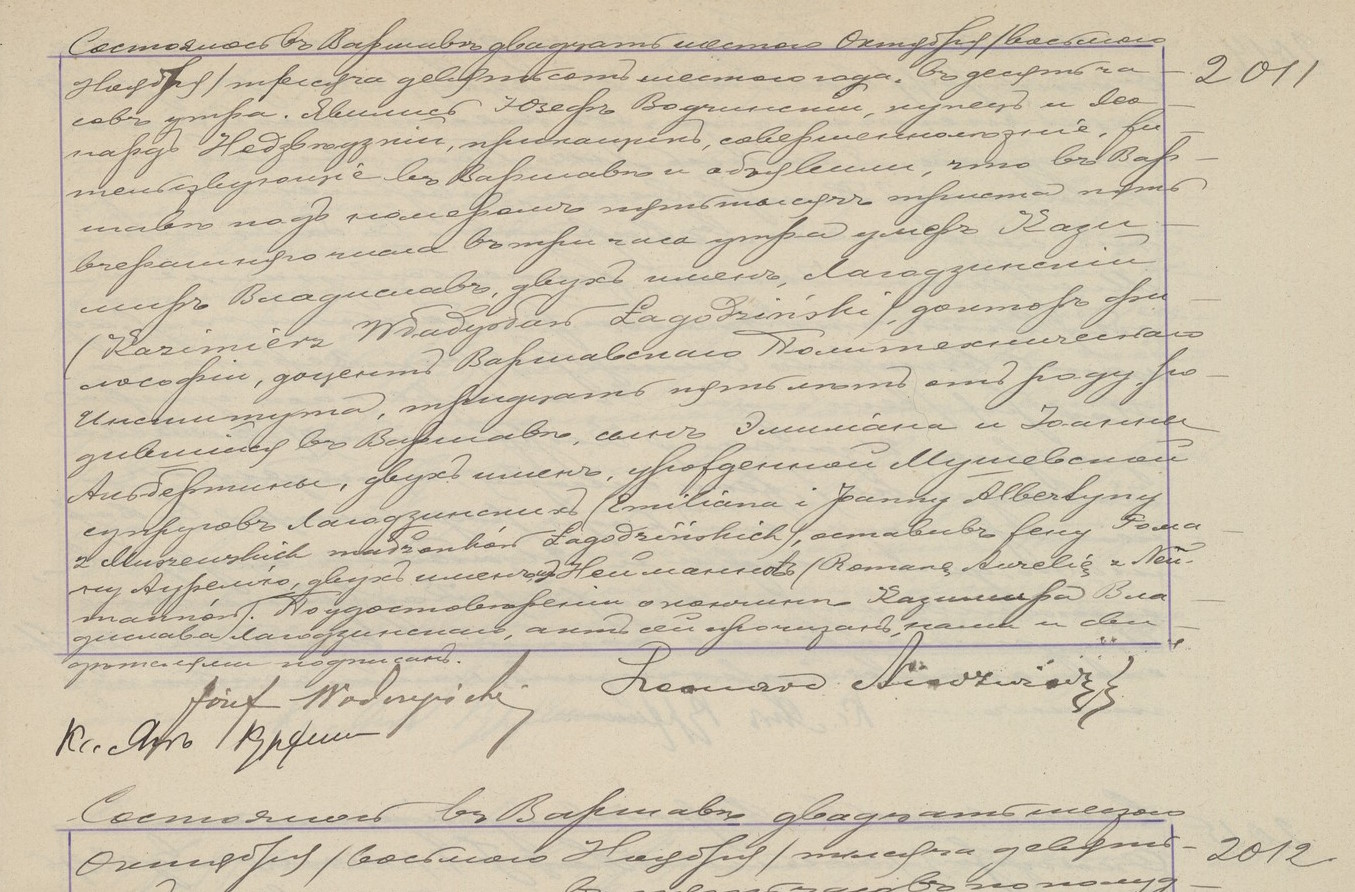 Состоялось въ Варшавѣ двадцать шестого Октября /восьмого
2011
Ноября/ тысяча девятьсотъ шестого года, въ десять ча
совъ утра. Явились Юзефъ Водчинскій, купецъ и Лео
нардъ Недзвѣдзкій, прикащикъ, совершеннолѣтніе, жи
тельствующіе въ Варшавѣ и объявили, что въ Вар
шавѣ подъ номеромъ пять тысячъ триста пять
вчерашняго числа въ три часа утра умеръ Кази
миръ Владиславъ, двухъ именъ, Лагодзинскій
(Kazimierz Władysław Łagodziński), докторъ фи
лософіи, доцентъ Варшавскаго Политехническаго
Института, тридцать пять лѣтъ отъ роду, ро
дившійся въ Варшавѣ, сынъ Эмиліана и Іоанны
Альбертины, двухъ именъ, урожденной Мушевской
супруговъ Лагодзинскихъ (Emiliana i Joanny Albertyny
z Muszewskich małżonków Łagodzińskich), оставивъ жену Рома
ну Аурелію, двухъ именъ, Нейманновъ (Romanę Aurelię z Neu-
mannów). По удостовѣреніи о кончинѣ Казимира Вла
дислава Лагодзинскаго, актъ сей прочитанъ, нами и сви
дѣтелями подписанъ.
Józef
Leonard
Кс. Янъ
Состоялось въ Варшавѣ двадцать шестого
Октября /восьмого Ноября/ тысяча девять-
2012